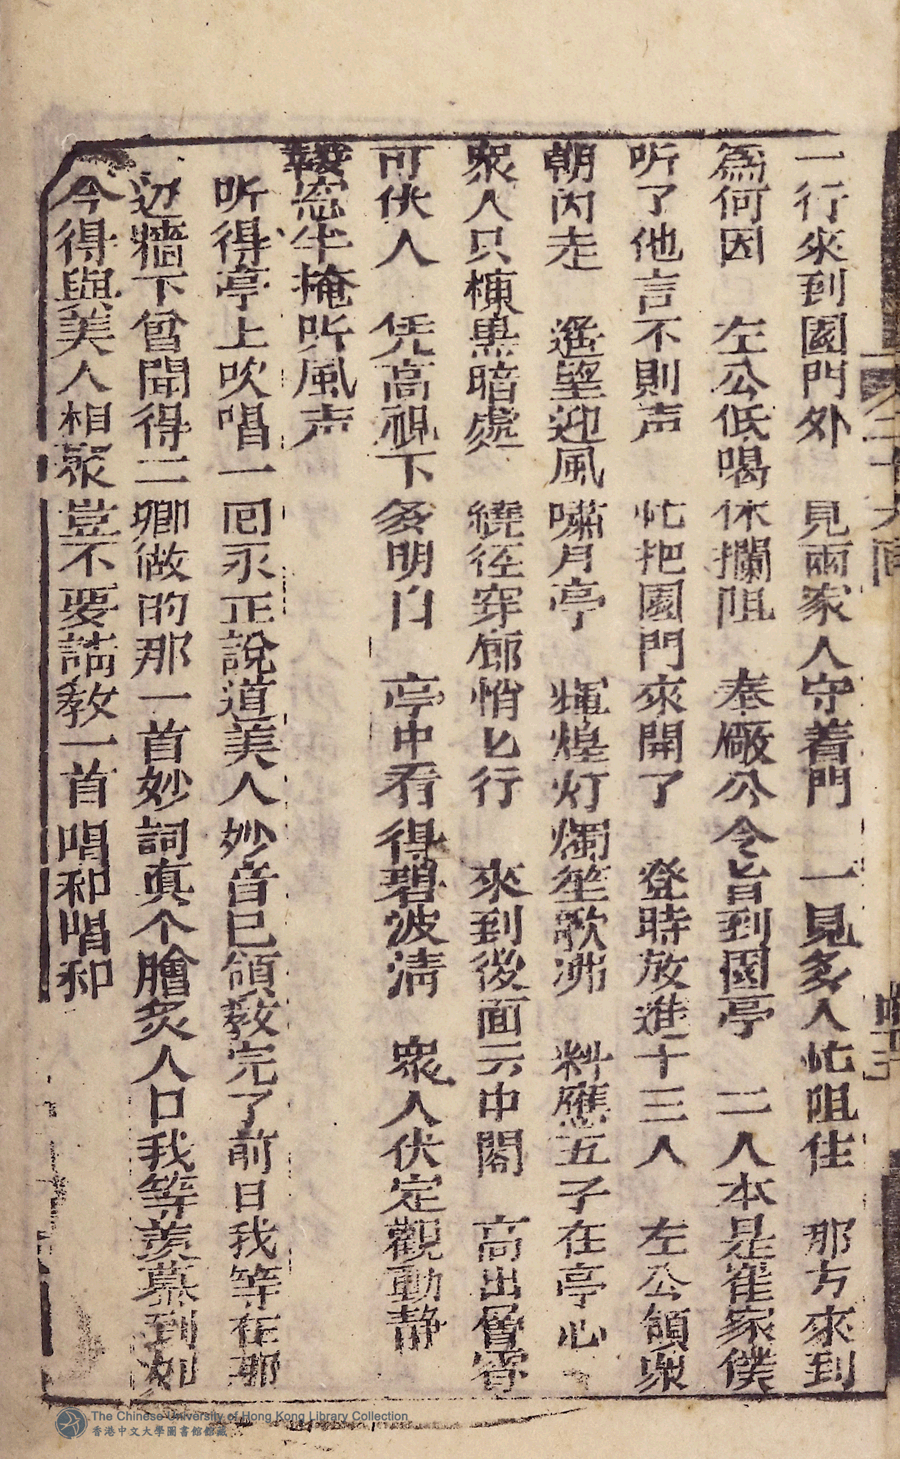 一行來到園門外　見兩家人守着門　一見多人忙阻住　那方來到
爲何因　左公低喝休攔阻　奉厰公令旨到園亭　二人本是崔家僕
听了他言不則声　忙把園門來開了　登時放進十三人　左公領衆
朝內走　遙望迎風嘯月亭　輝煌灯燭笙歌沸　料應五子在亭心
衆人只揀黑暗處　繞徑穿廊悄匕行　來到後面云中閣　高出層霄
可伏人　凭高視下多明白　亭中看得碧波清　衆人伏定觀動静
窓半掩听風声
听得亭上吹唱一囘永正說道美人妙音已領教完了前日我等在那
边牆下曾聞得二卿做的那一首妙詞真个膾炙人口我等羡慕到如
今得與美人相聚豈不要請教一首唱和唱和
The Chinese University of Hong Kong Library Collection
香港中文大學圖書館館藏